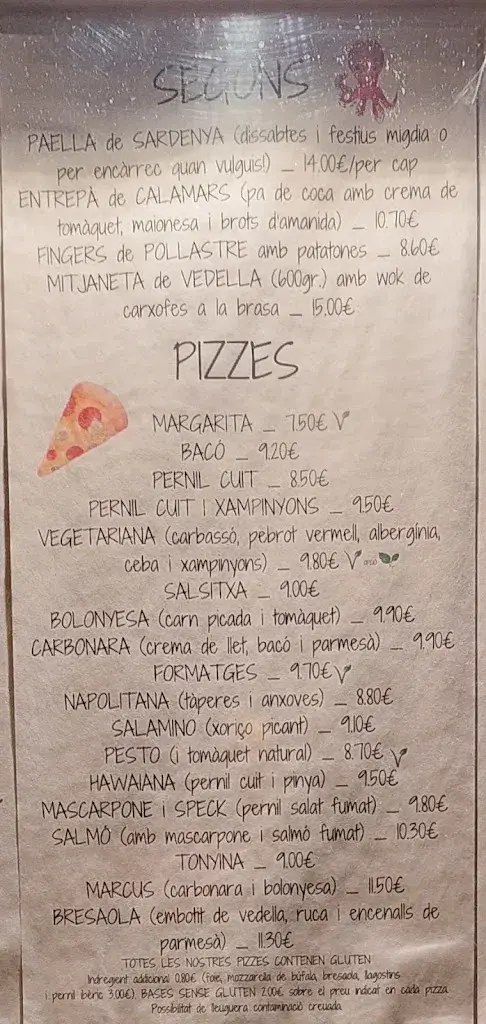 SEGONS
PAELLA de SARDENYA (dissabtes i festius migdia o
per encàrrec quan vulguis!) _ 14.00€/per cap
ENTREPÀ de CALAMARS (pa de coca amb crema de
tomàquet, maionesa i brots d'amanida) _ 10.70€
FINGERS de POLLASTRE amb patatones _ 8.60€
MITJANETA de VEDELLA (600gr.) amb wok de
carxofes a la brasa _ 15.00€
PIZZES
MARGARITA _ 7.50€ V
BACÓ _ 9.20€
PERNIL CUIT _ 8.50€
PERNIL CUIT I XAMPINYONS _ 9.50€
VEGETARIANA (carbassó, pebrot vermell, albergínia,
ceba i xampinyons) _ 9.80€ V opció
SALSITXA _ 9.00€
BOLONYESA (carn picada i tomàquet) _ 9.90€
CARBONARA (crema de llet, bacó i parmesà) _ 9.90€
FORMATGES _ 9.70€ V
NAPOLITANA (tàperes i anxoves) _ 8.80€
SALAMINO (xoriço picant) _ 9.10€
PESTO (i tomàquet natural) _ 8.70€ V
HAWAIANA (pernil cuit i pinya) _ 9.50€
MASCARPONE i SPECK (pernil salat fumat) _ 9.80€
SALMÓ (amb mascarpone i salmó fumat) _ 10.30€
TONYINA _ 9.00€
MARCUS (carbonara i bolonyesa) _ 11.50€
BRESAOLA (embotit de vedella, ruca i encenalls de
parmesà) _ 11.30€
TOTES LES NOSTRES PIZZES CONTENEN GLUTEN
Indregient addicional 0.80€ (foie, mozzarella de búfala, bresaola, llagostins
i pernil ibèric 3.00€). BASES SENSE GLUTEN 2.00€ sobre el preu indicat en cada pizza.
Possibilitat de lleuguera contaminació creuada